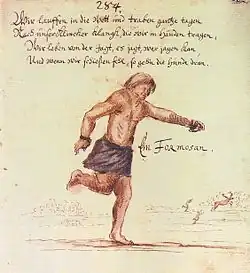 284.
Wir lauffen in die Wett und traben gantze tagen
Nach unser Klang, die wir in händen tragen,
Wir leben von der Jagt, es sagt, wer jagen kan,
Und wenn wir schiessen fehl, so gehn die Hunde dran.
Ein Formosan.